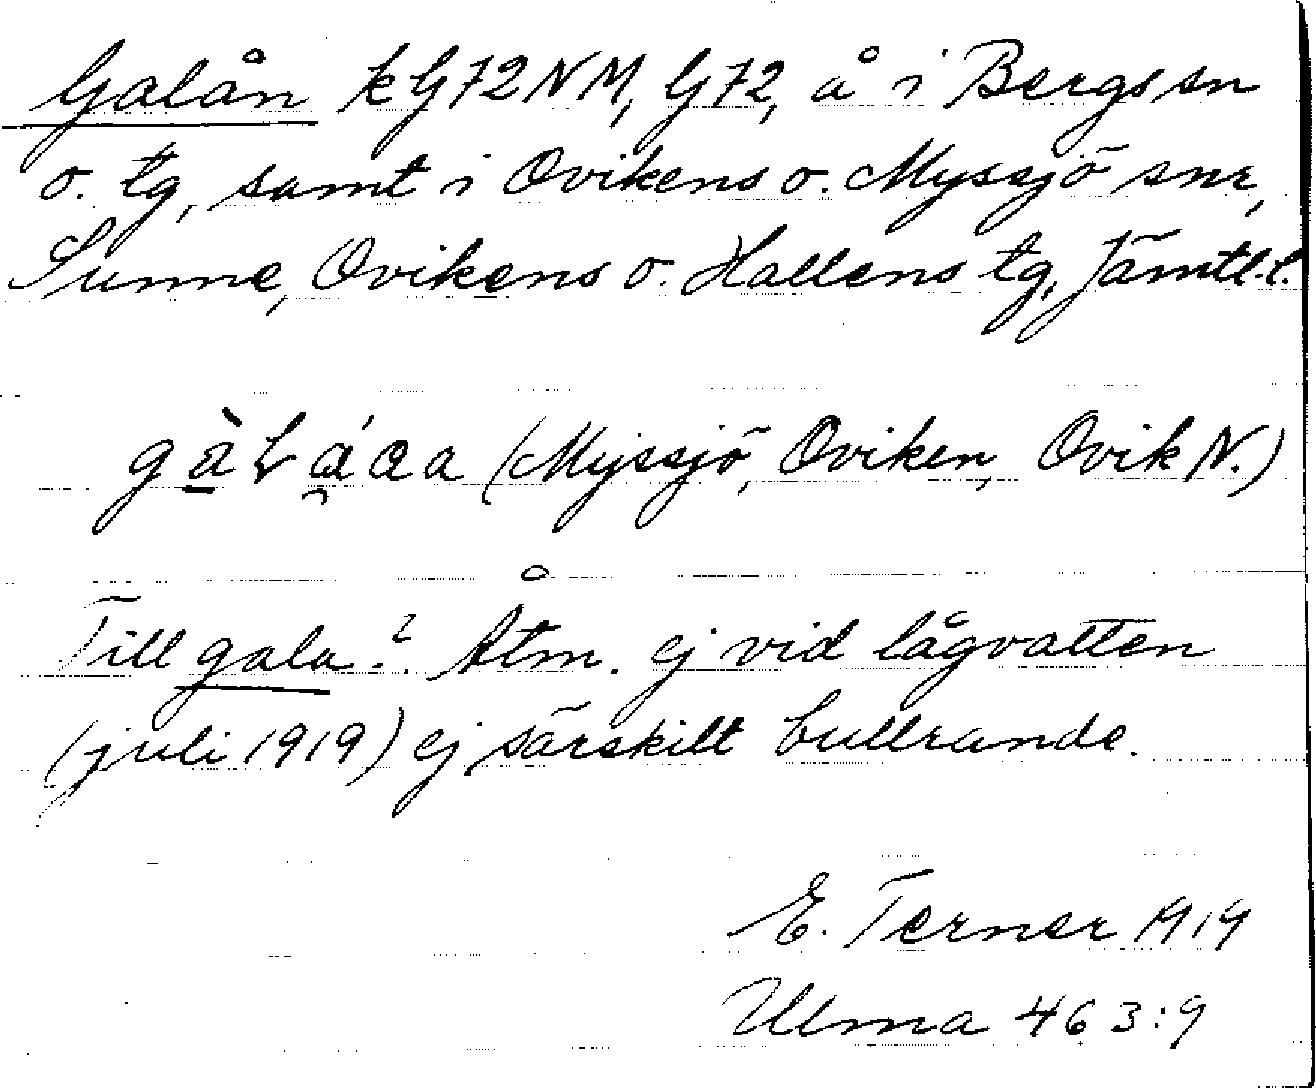 Galån kG72NM, G72, å i Bergs sn
o. tg, samt i Ovikens o. Myssjö snr,
Sunne, Ovikens o. Hallens tg, Jämtl.l.
(Myssjö, Oviken, Ovik N.)
Till gala? Åtm. ej vid lågvatten
(juli 1919) ej särskilt bullrande.
E. Terner 1919
Ulma 463:9